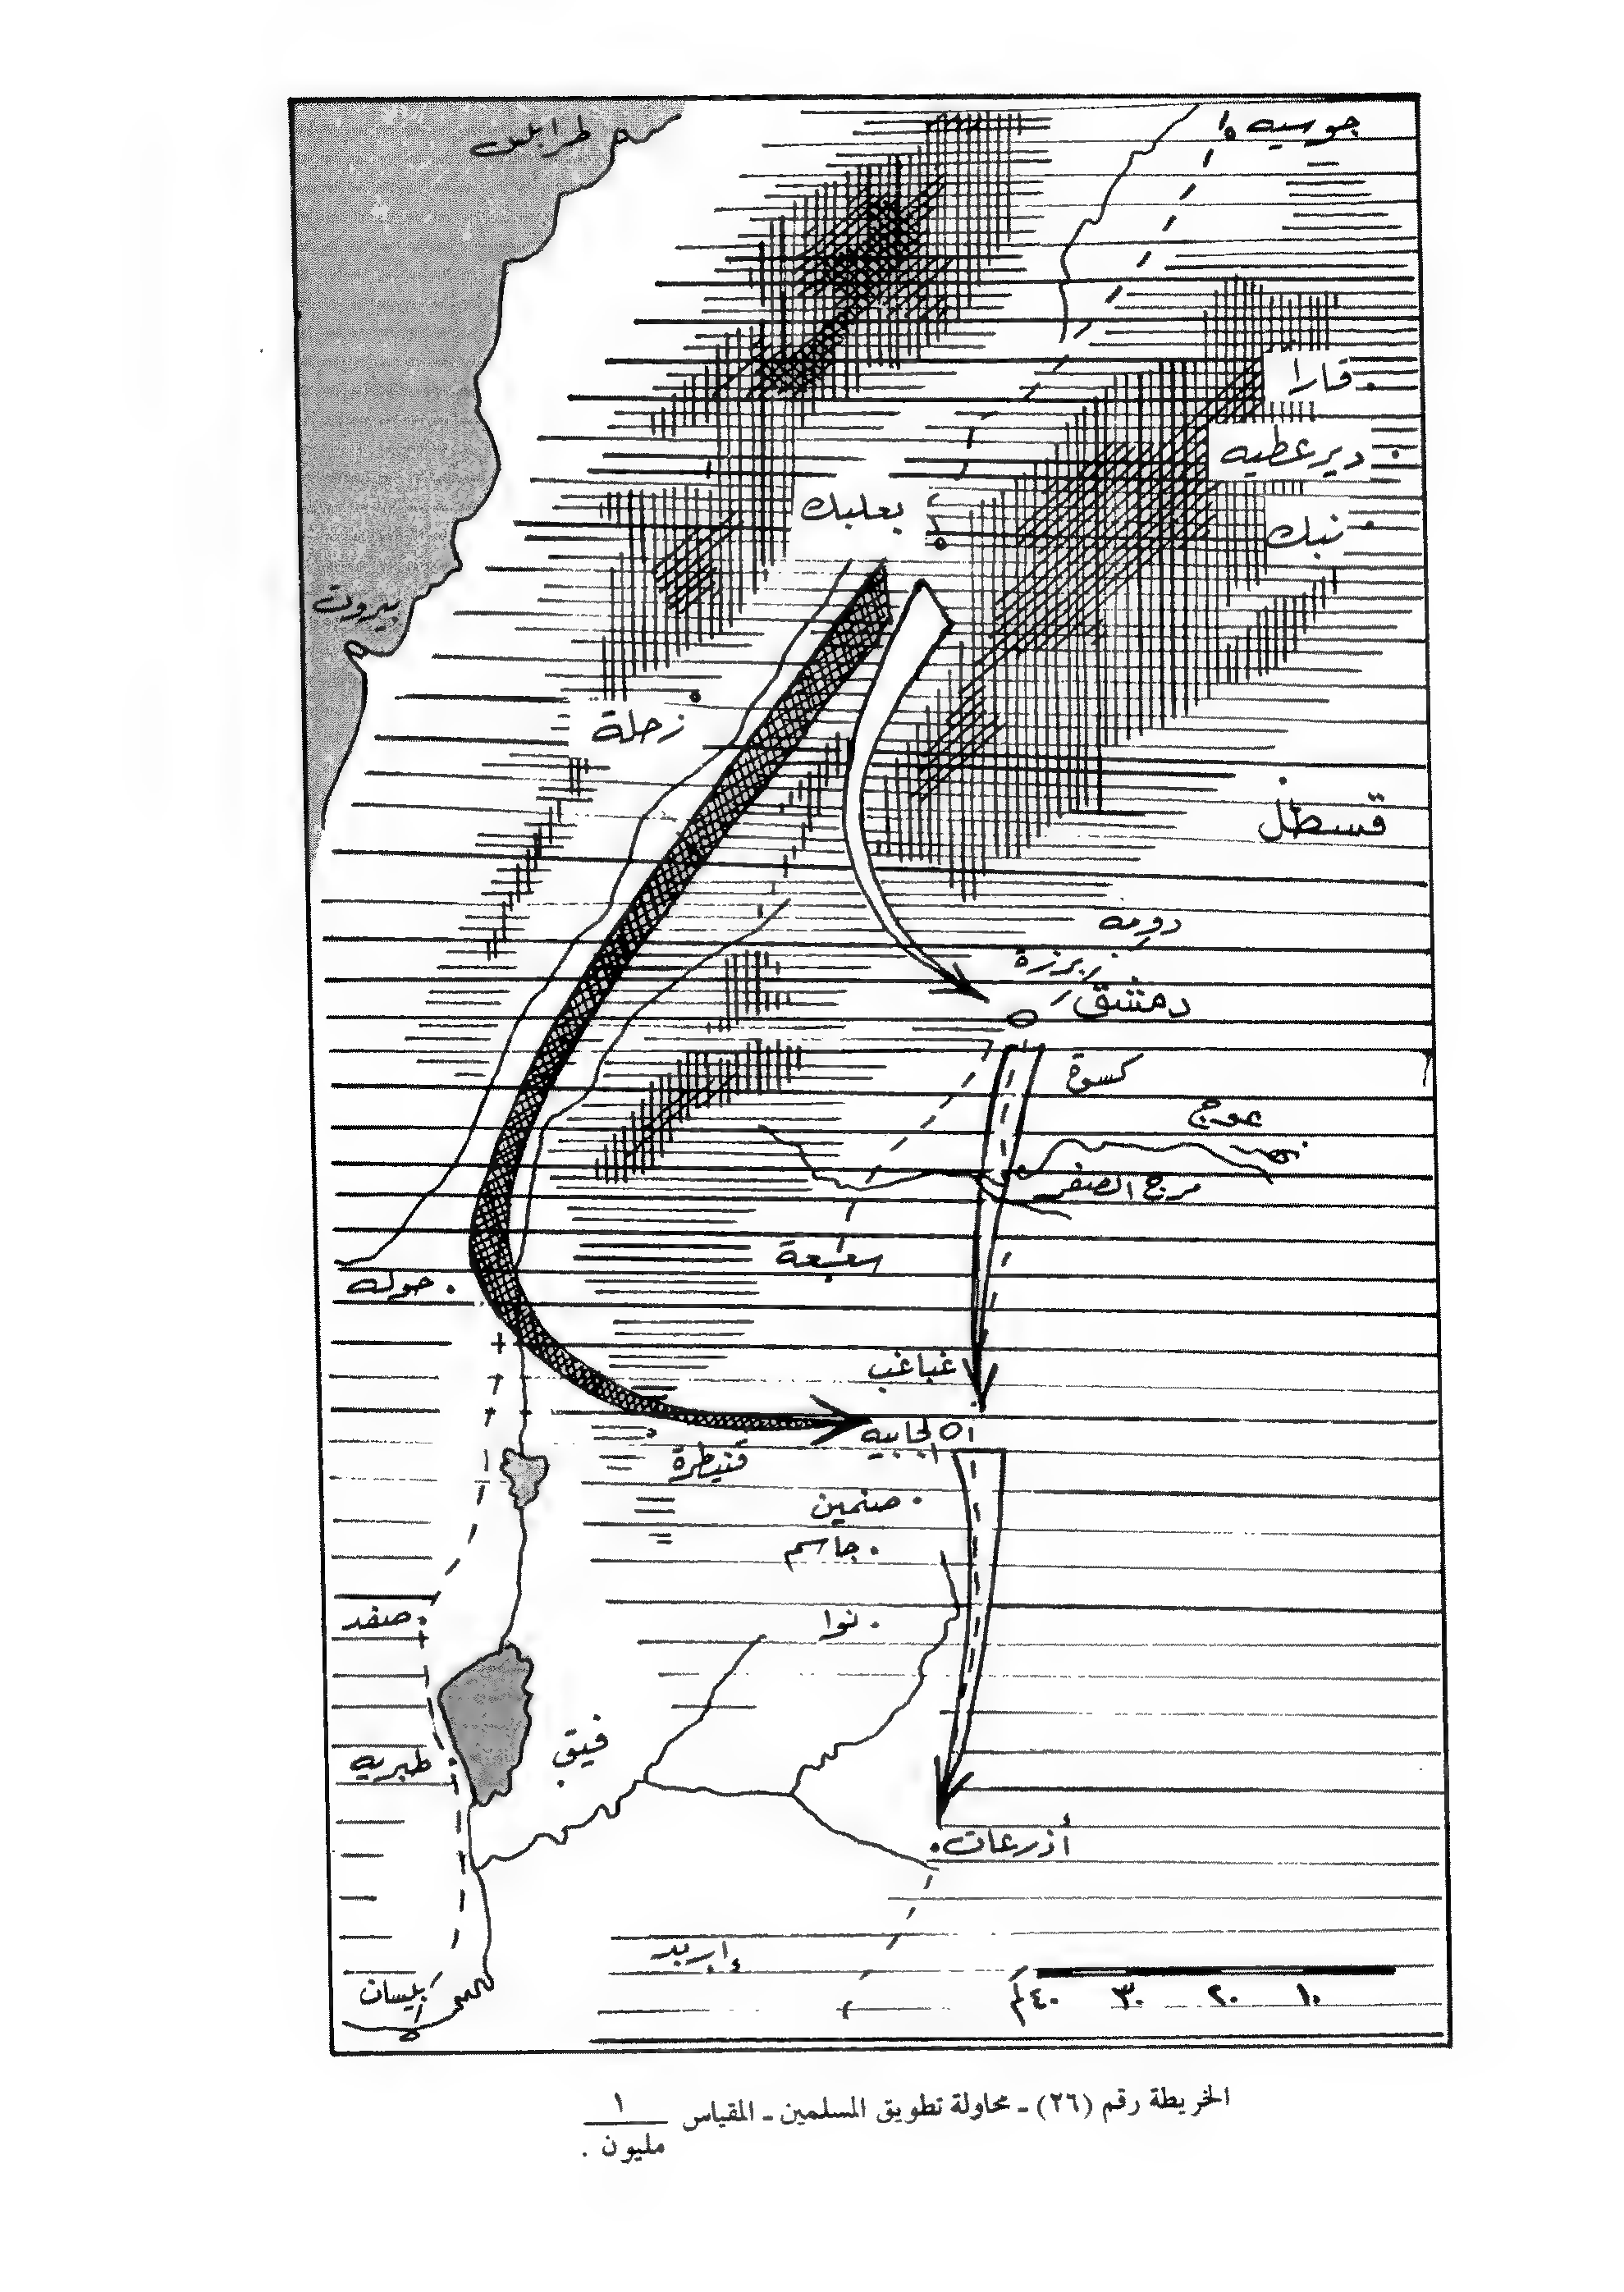 جوسيه
طرابلس
قارا
ديرعطيه
نبك
بعلبك
بيروت
زحلة
قسطل
دومه
برزة
دمشق
كسوة
عوج
مرج الصفر
سعسعة
حوله
غباغب
الجابيه
قنيطرة
صنمين
جاسم
نوا
صفد
فيق
طبريه
أذرعات
إربد
بيسان
١٠ ٢٠ ٣٠ ٤٠ كم
الخريطة رقم (٢٦) ـ محاولة تطويق المسلمين ـ المقياس ١
مليون .